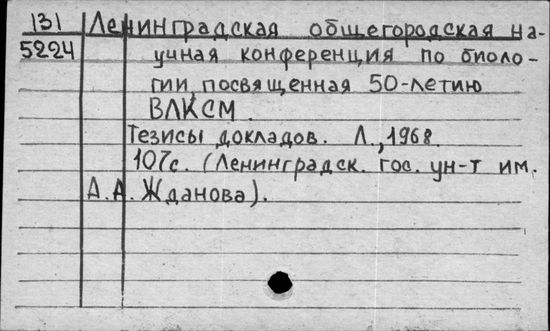 131 Ленинградская общегородская на-
5224 учная конференция по биоло-
гии, посвященная 50-летию
ВЛКСМ.
Тезисы докладов. Л., 1968.
107с. (Ленинградск. гос. ун-т им.
А.А. Жданова).